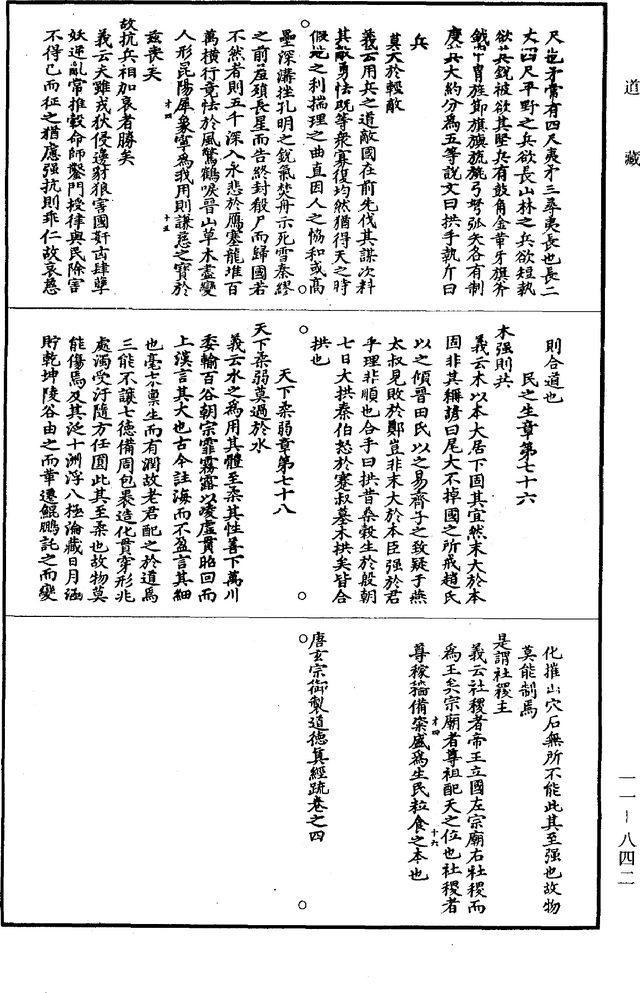 道藏
尺酋矛常有四尺夷矛三尋夷長也長二
丈四尺平野之兵欲長山林之兵欲短執
欲其銳被欲其堅兵有鼓角金革牙旗斧
鉞甲冑旌節旗旟旒旄弓弩弧矢各有制
度其大約分為五等說文曰拱手執斤曰
兵
莫大於輕敵
義云用兵之道敵國在前先伐其謀次料
其敵勇怯既等衆寡復均然猶得天之時
假地之利揣理之曲直因人之恊和或高
壘深溝挫孔明之銳氣焚舟示死雪秦繆
之前羞頹長星而告終封殽尸而歸國若
不然者則五千深入永悲於鴈塞龍堆百
萬橫行竟怯於風驚鶴唳晉山草木盡變
人形昆陽犀象寧為我用則謙慈之寶於
十四
十五
兹喪矣
故抗兵相加哀者勝矣
義云夫雖戎狄侵邊豺狼害國奸宄肆孽
妖逆亂常推轂命師鑿門授律與民除害
不得已而征之猶應强抗則乖仁故哀慈
則合道也
民之生章第七十六
木强則共
義云木以本大居下固其宜然末大於本
固非其稱諺曰尾大不掉國之所戒趙氏
以之傾晉田氏以之易齊子之致疑于燕
太叔見敗於鄭豈非末大於本臣强於君
乎理非順也合手曰拱昔桑榖生於殷朝
七日大拱秦伯怒於蹇叔墓木拱矣皆合
拱也
天下柔弱章第七十八
天下柔弱莫過於水
義云水之為用其體至柔其性善下萬川
委輸百谷朝宗霏霧露以凌虛貫昭回而
上漢言其大也古今註海而不盈言其細
也毫芒稟生而有潤故老君配之於道焉
三能不讓七德備周包裹造化貫穿形兆
處濁受汙隨方任圓此其至柔也故物莫
能傷焉及其泛十洲浮八極淪藏日月涵
貯乾坤陵谷由之而革遷鯤鵬託之而變
化摧山穴石無所不能此其至强也故物
莫能制焉
是謂社稷主
義云社稷者帝王立國左宗廟右社稷而
為王矣宗廟者尊祖配天之位也社稷者
十四
十六
尊稼穡備粢盛為生民粒食之本也
唐玄宗御製道德真經疏卷之四
一一－八四二